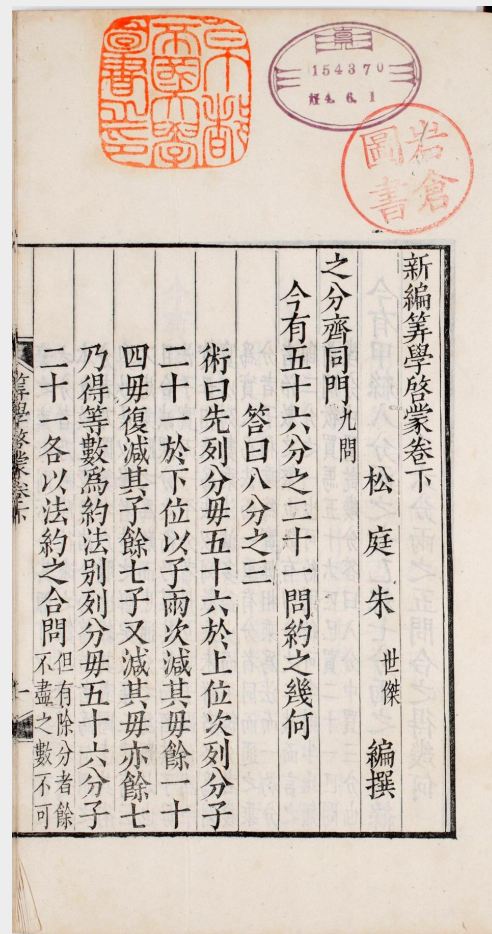 京都
帝國大學
圖書之印
154370
4.6.1
岩倉
圖書
新編筭學啓蒙卷下
松庭朱 世傑 編撰
之分齊同門 九問
今有五十六分之二十 問約之幾何
答曰八分之三
術曰先列分毋五十六於上位次列分子
二十 於下位以子兩次減其毋餘一十
四毋復減其子餘七子又減其毋亦餘七
乃得等數爲約法别列分毋五十六分子
二十一各以法約之合問 但有除分者餘
不盡之數不可
筭學啓蒙卷下 一